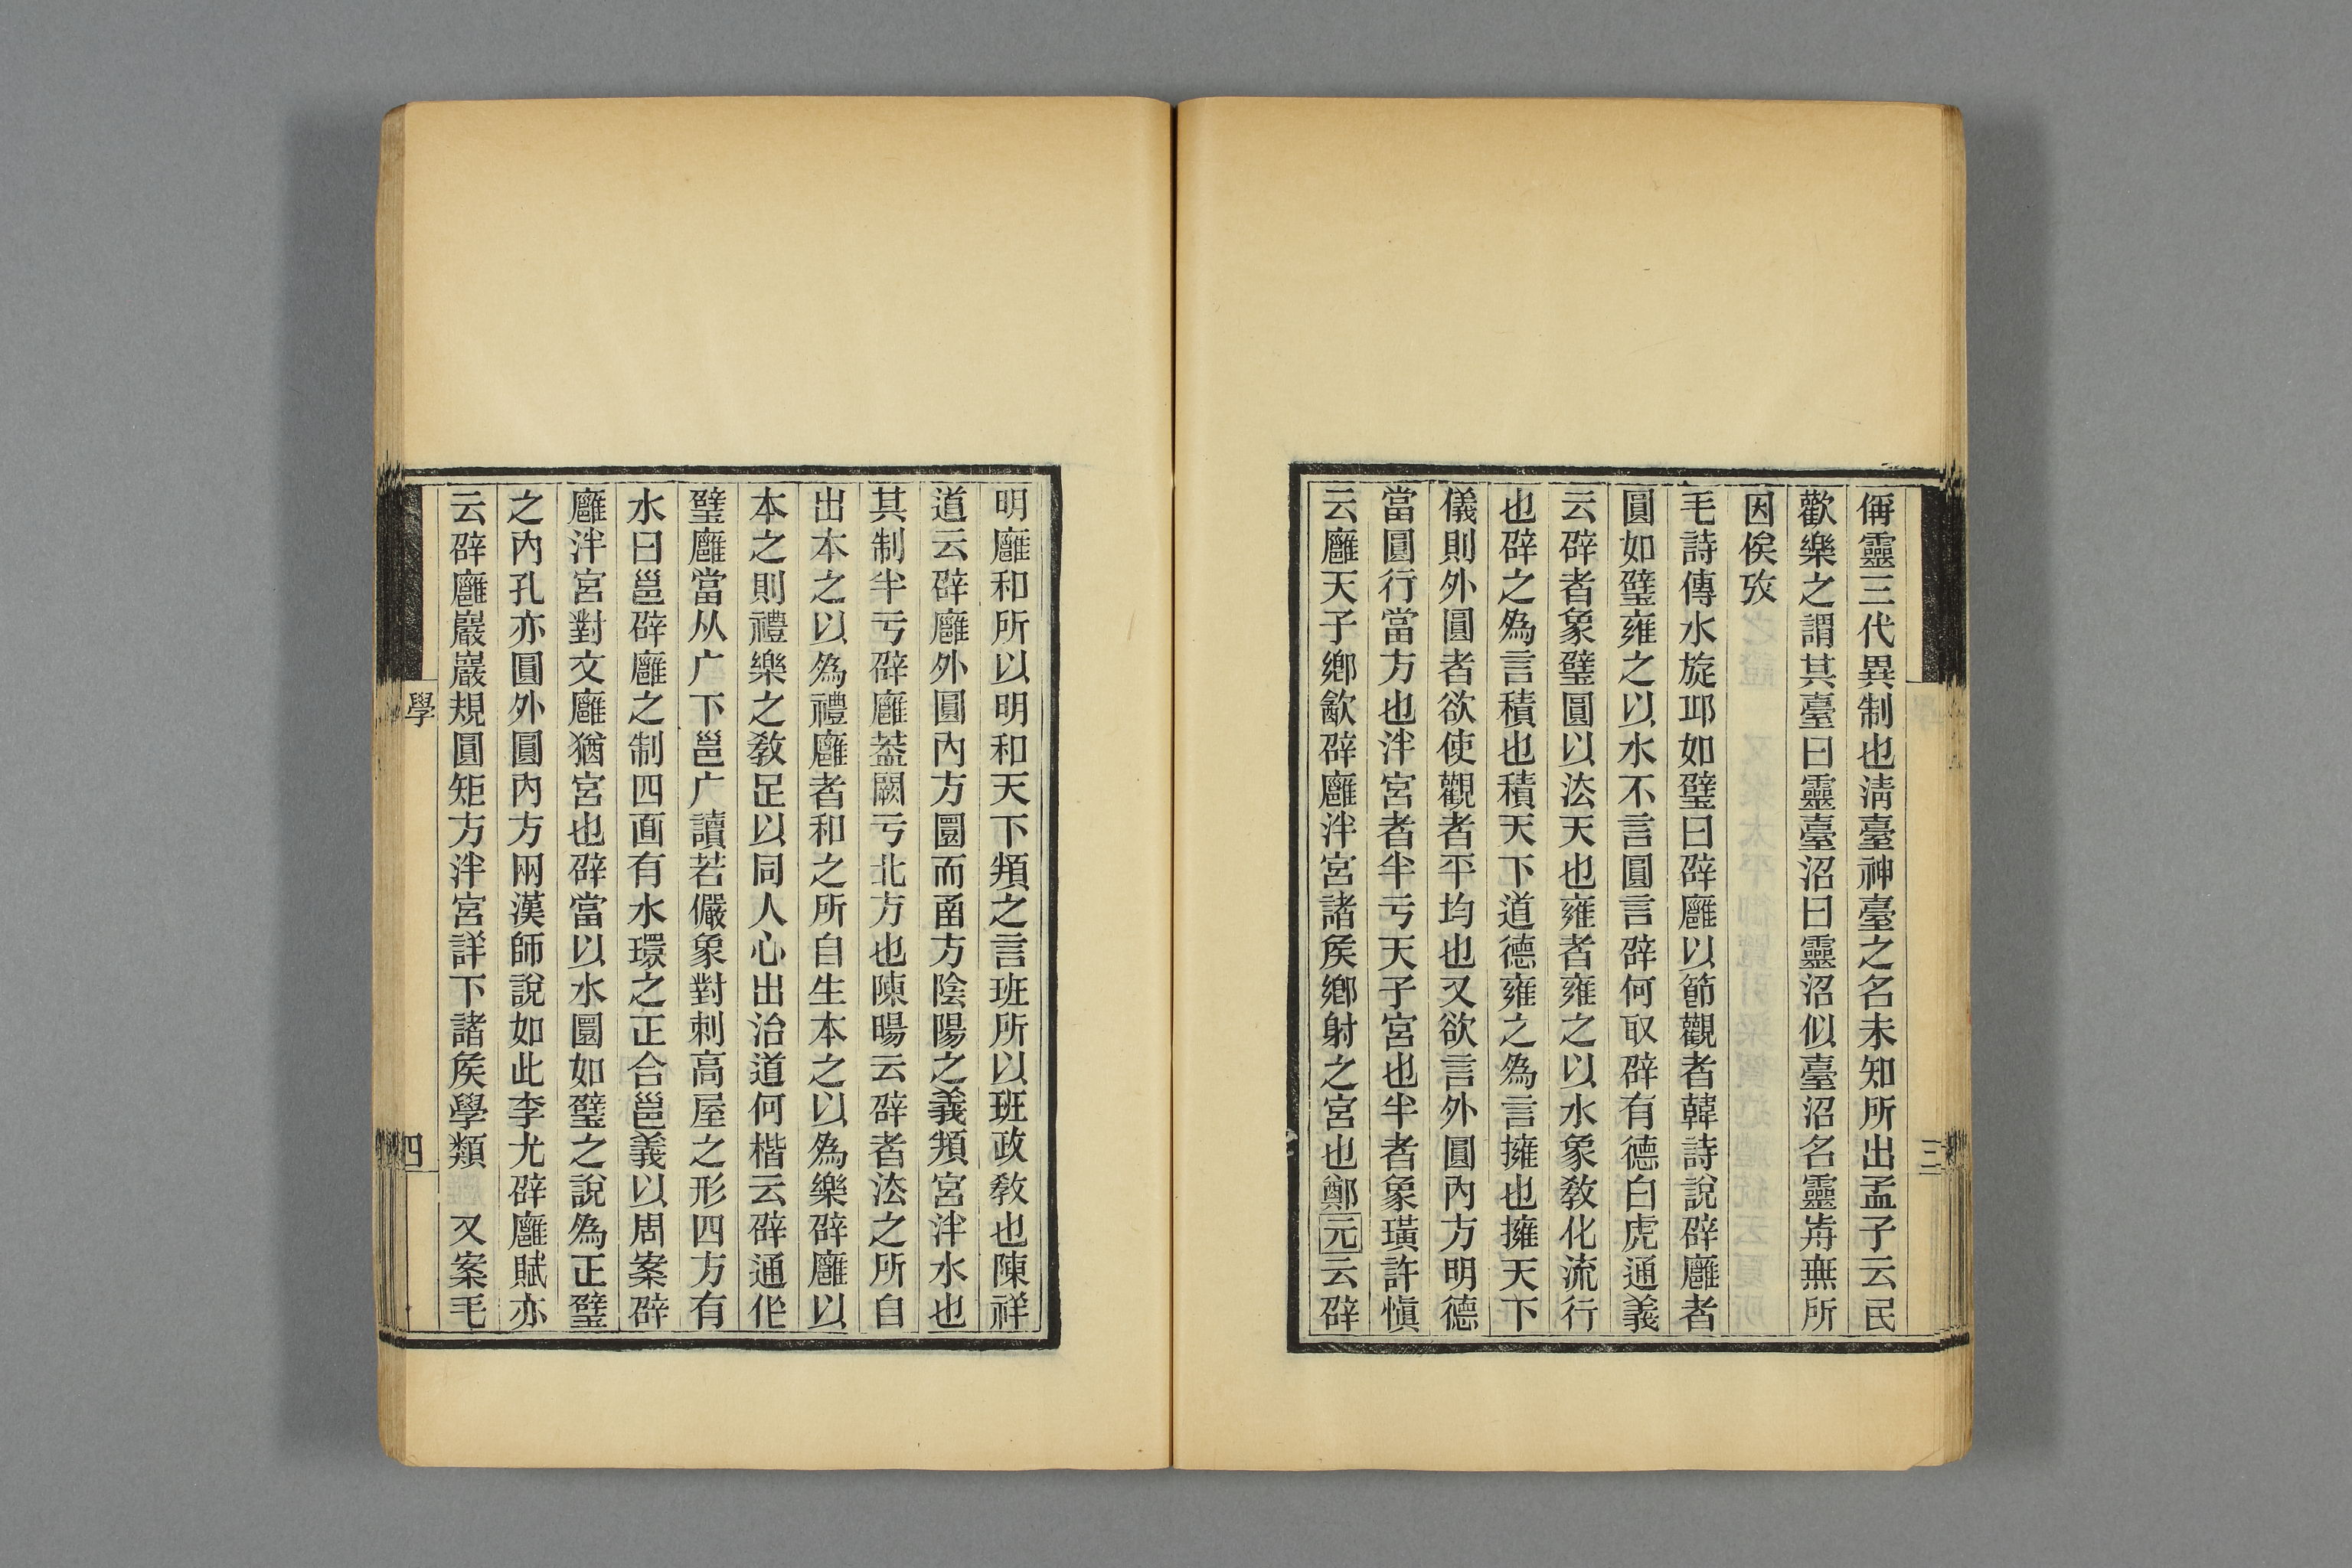 偁靈三代異制也淸臺神臺之名未知所出孟子云民
歡樂之謂其臺曰靈臺沼曰靈沼似臺沼名靈歬無所
因俟攷
毛詩傳水旋邱如璧曰辟廱以節觀者韓詩說辟廱者
圓如璧雍之以水不言圓言辟何取辟有德白虎通義
云辟者象璧圓以法天也雍者雍之以水象敎化流行
也辟之為言積也積天下道德雍之為言擁也擁天下
儀則外圓者欲使觀者平均也又欲言外圓內方明德
當圓行當方也泮宮者半亏天子宮也半者象璜許愼
云廱天子鄉歙辟廱泮宮諸矦鄉射之宮也鄭元云辟
三
明廱和所以明和天下頖之言班所以班政敎也陳祥
道云辟廱外圓內方圜而圅方陰陽之義頖宮泮水也
其制半亏辟廱葢闕亏北方也陳暘云辟者法之所自
出本之以為禮廱者和之所自生本之以為樂辟廱以
本之則禮樂之敎足以同人心出治道何楷云辟通作
璧廱當从广下邕广讀若儼象對刺高屋之形四方有
水曰邕辟廱之制四面有水環之正合邕義以周案辟
廱泮宮對文廱猶宮也辟當以水圜如璧之說為正璧
之內孔亦圓外圓內方兩漢師說如此李尤辟廱賦亦
云辟廱巖巖規圓矩方泮宮詳下諸矦學類　又案毛
學
四